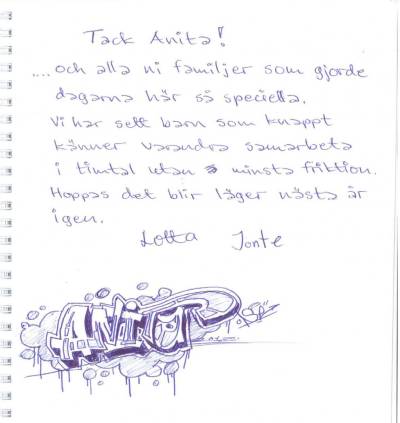 Tack Anita!
.... och alla ni familjer som gjorde
dagarna här så speciella.
Vi har sett barn som knappt
känner varandra samarbeta
i timtal utan minsta friktion.
Hoppas det blir läger nästa år
igen.
Lotta Jonte
ANITA